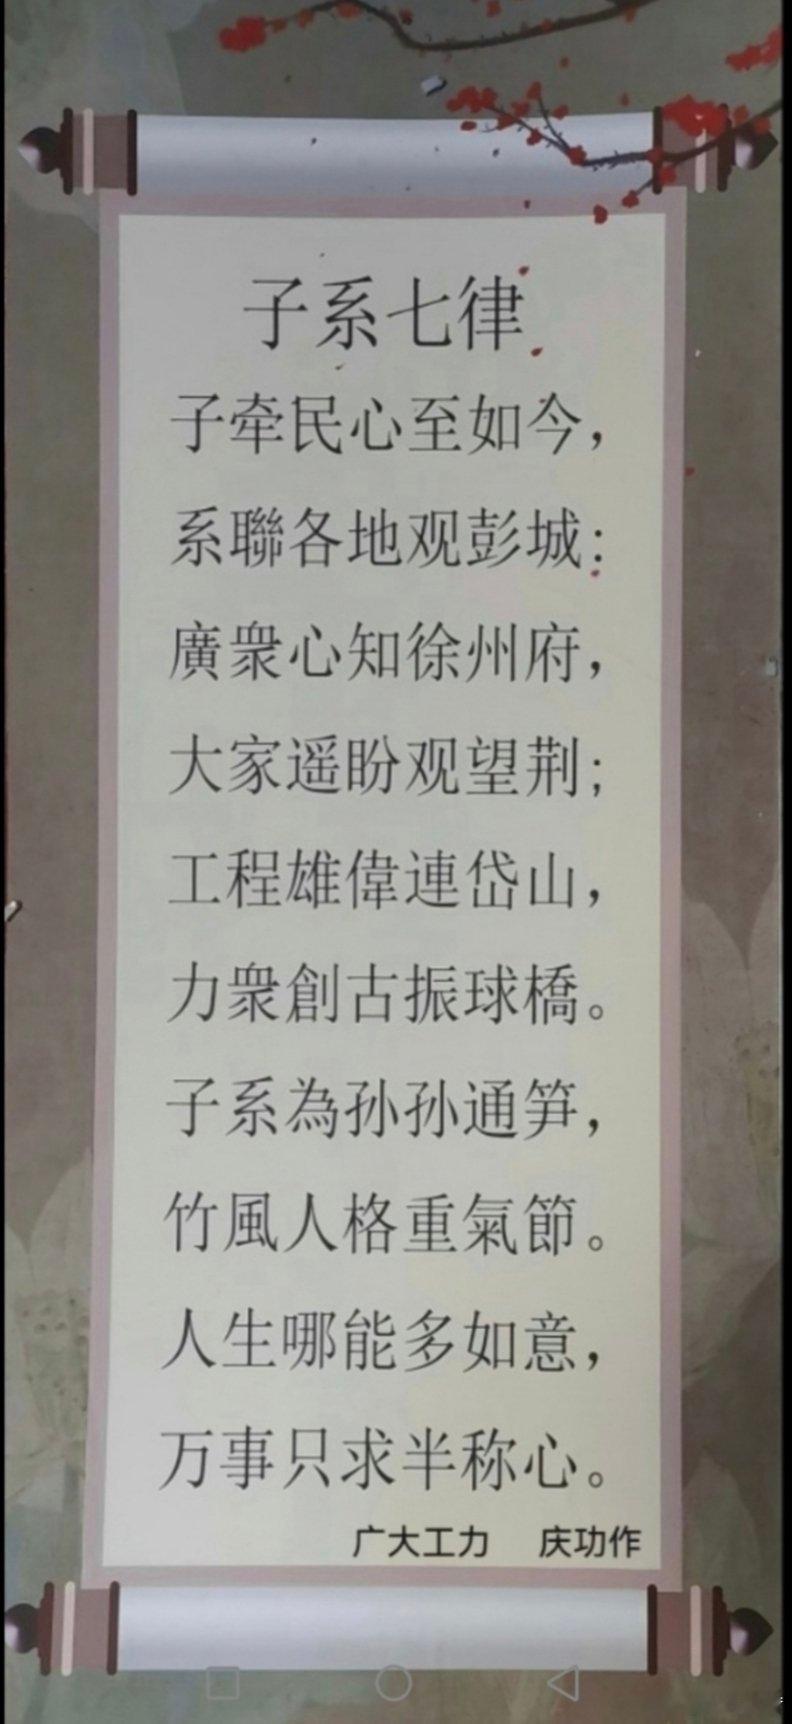 子系七律
子牵民心至如今，
系聯各地观彭城：
廣衆心知徐州府，
大家遥盼观望荆；
工程雄偉連岱山，
力衆創古振球橋。
子系為孙孙通笋，
竹風人格重氣節。
人生哪能多如意，
万事只求半称心。
广大工力 庆功作